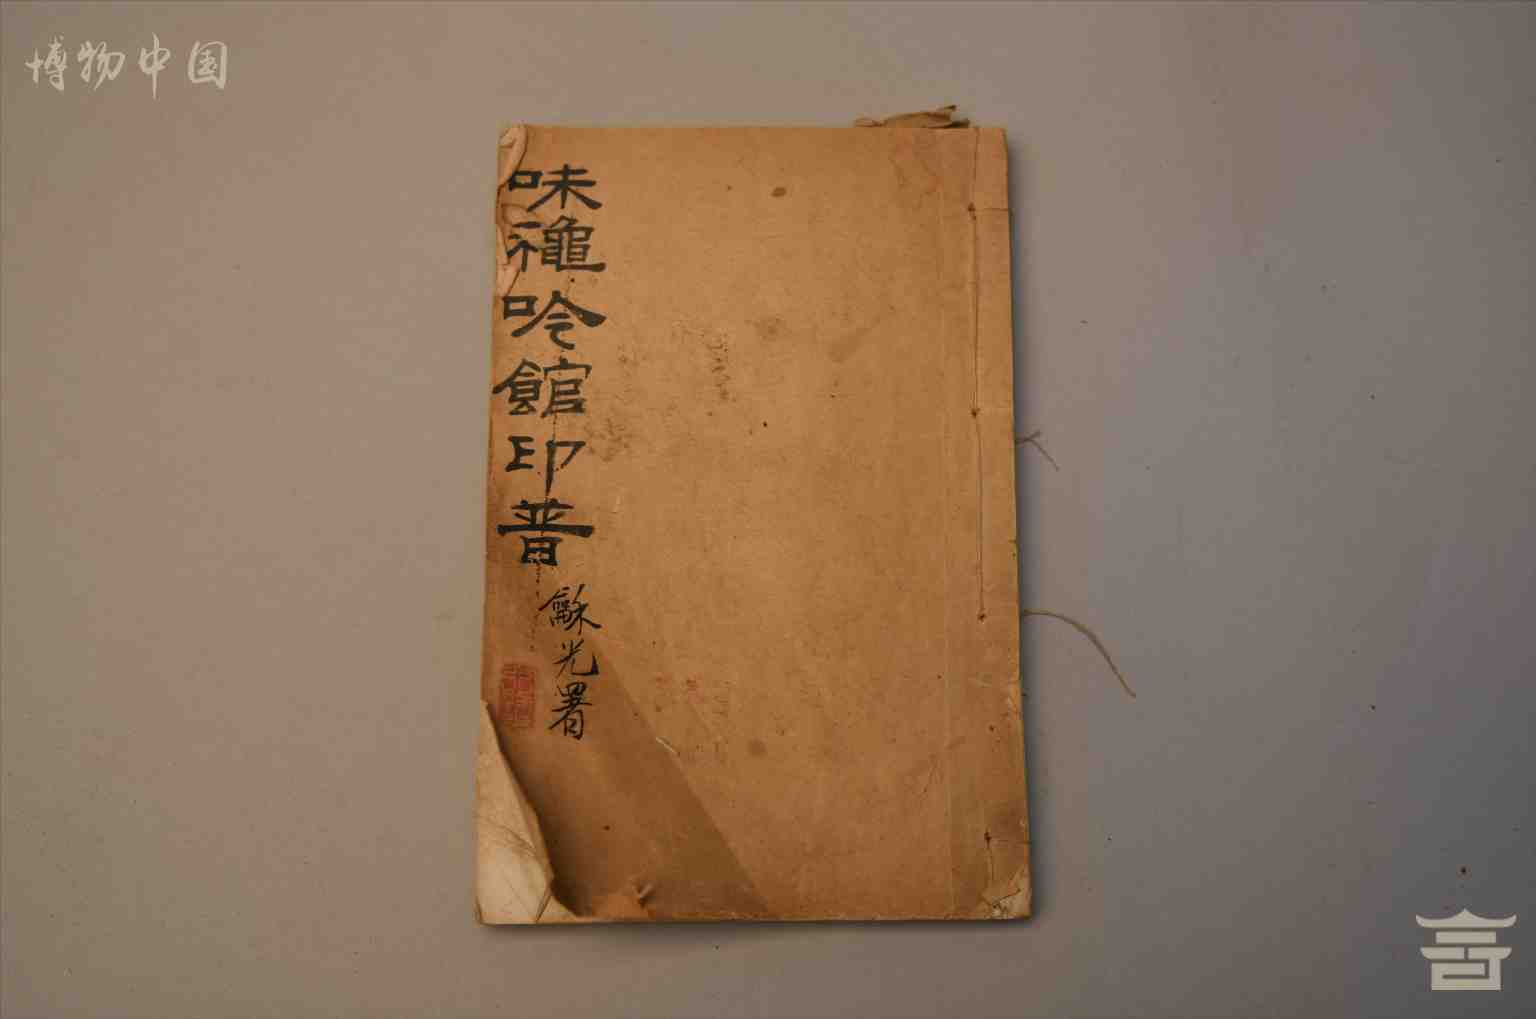 博物中国
味穐吟館印普
龢光署